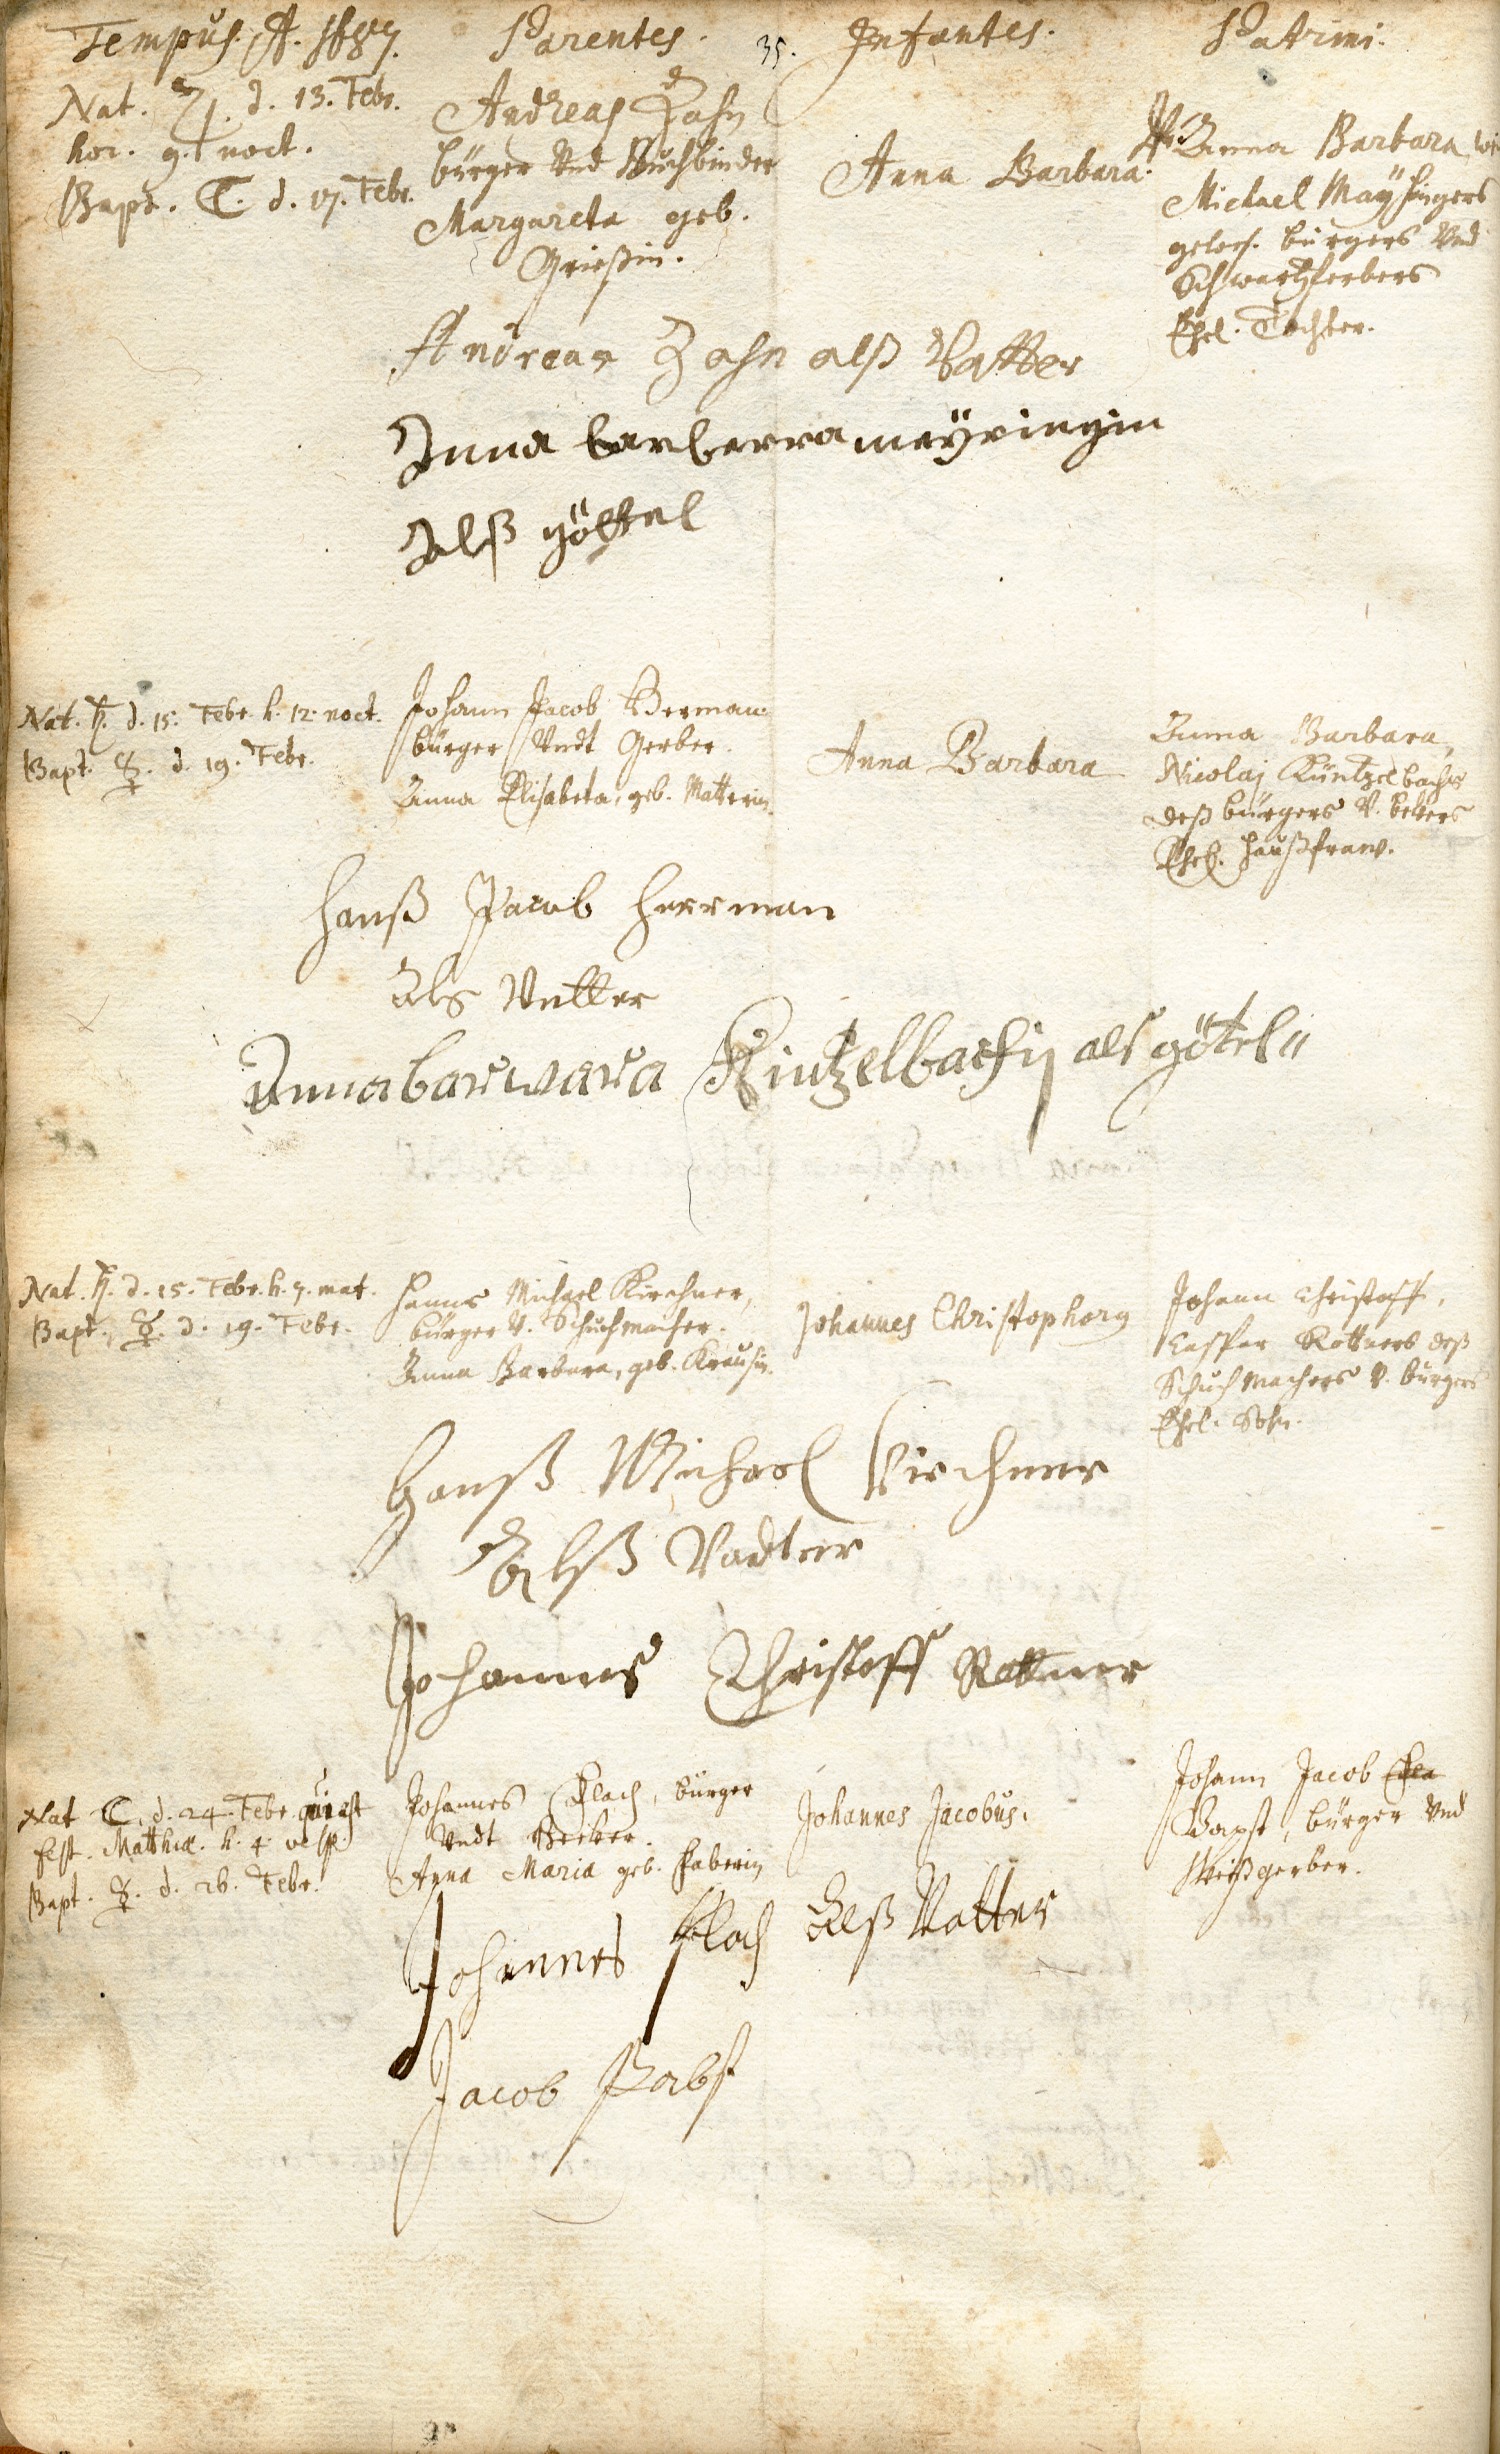 Tempus. A. 1687. Parentes. 35. Infantes. Patrimi.
Nat. ♃. d. 13. Febr.
hor. 9. noct.
Bapt. ☾. d. 17. Febr.
Andreas Zahn
bürger Vnd Buchbinder
Margareta geb.
Grießin.
Anna Barbara.
Anna Barbara,
Michael
geweß. bürgers Vnd
Schwartzferbers
Ehel. Tochter.
Andreas Zahn alß Vatter
Anna barberra meyringin
Alß göttel
Nat. ♄. d. 15. Febr. h. 12. noct.
Bapt. ☿. d. 19. Febr.
Johann Jacob Herman
bürger Vndt Gerber.
Anna Elisabeta, geb. Matterin.
Anna Barbara
Anna Barbara,
Nicolaj Küntzelbachs
deß bürgers V. bekers
Ehel. haußfraw.
Hanß Jacob Herrman
Als Vatter
Anna barwara Kintzelbachin als götel
Nat. ♄. d. 15. Febr. h. 7. mat.
Bapt. ☿. d. 19. Febr.
Hanns Michael Kirchner,
bürger V. Schuchmacher.
Anna Barbara, geb. Krausin.
Johannes Christophorus
Johann Christoff,
Caspar Rottners deß
Schuchmachers V. bürgers
Ehel. Sohn.
Hanß Michael Kirchner
Alß Vadter
Johannes Christoff Rottner
Nat. ☾. d. 24. Febr.
fest. Matthiæ. h. 4. vesp.
Bapt. ☿. d. 26. Febr.
Johannes Flach, bürger
Vndt Becker.
Anna Maria geb. Faberin
Johannes Jacobus.
Johann Jacob
Bapst, bürger Vnd
Weißgerber.
Johannes Flach Alß Vatter
Jacob Pabst